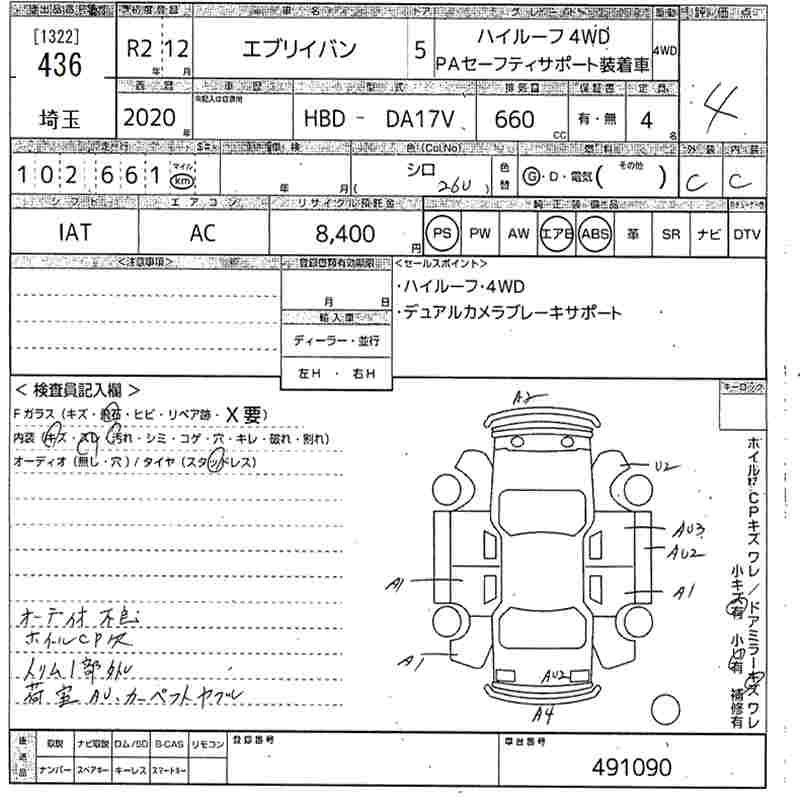 [1322]
436
埼玉
R2 12
年 月
エブリイバン
ドア
5
ハイルーフ 4WD
PAセーフティサポート装着車
4WD
評価点
4
西暦
車歴
型式
排気量
保証書
定員
2020
年
HBD - DA17V
660
CC
有・無
4
名
走行
車検
色(Col,No)
燃料
外装
内装
102 661
マイル
km
年 月
シロ
( 26U )
色替
G・D・電気(その他)
C
C
シフト
エアコン
リサイクル預託金
純正装備品
IAT
AC
8,400
円
PS
PW
AW
エアB
ABS
革
SR
ナビ
DTV
<注意事項>
登録書類有効期限
月 日
輸入車
ディーラー・並行
左H ・ 右H
<セールスポイント>
・ハイルーフ・4WD
・デュアルカメラブレーキサポート
< 検査員記入欄 >
キーロック
Fガラス (キズ・飛石・ヒビ・リペア跡・X要)
内装 (キズ・スレ・汚れ・シミ・コゲ・穴・キレ・破れ・割れ)
オーディオ (無し・穴) / タイヤ (スタッドレス)
A2
U2
AU3
AU2
A1
A1
A1
AU2
A4
オーディオ不良
ホイルCP欠
トリム1部外レ
荷室AU.カーペットヤブレ
ホイル CPキズ ワレ / ドアミラーキズ ワレ
小キズ有 小凹有 補修有
後送品
取説
ナビ取説
ロム/SD
B-CAS
リモコン
ナンバー
スペアキー
キーレス
スマートキー
登録番号
車台番号
491090